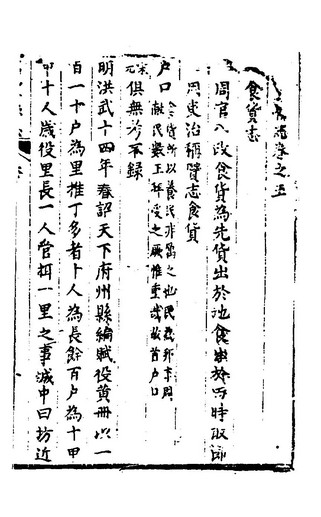 卷之五
食貨志
周官八政食貨為先貨出於地食出於四時取師
周末治稱賢志食貨
户口 食貨所以養民非富之也民為邦本周
獻民數王拜受之厥惟重哉故首户口
宋元俱無考不錄
明洪武十四年春詔天下府州縣編賦役黃冊以一
百一十户為里推丁多者十人為長餘百户為十甲
甲十人歲役里長一人管攝一里之事城中曰坊近